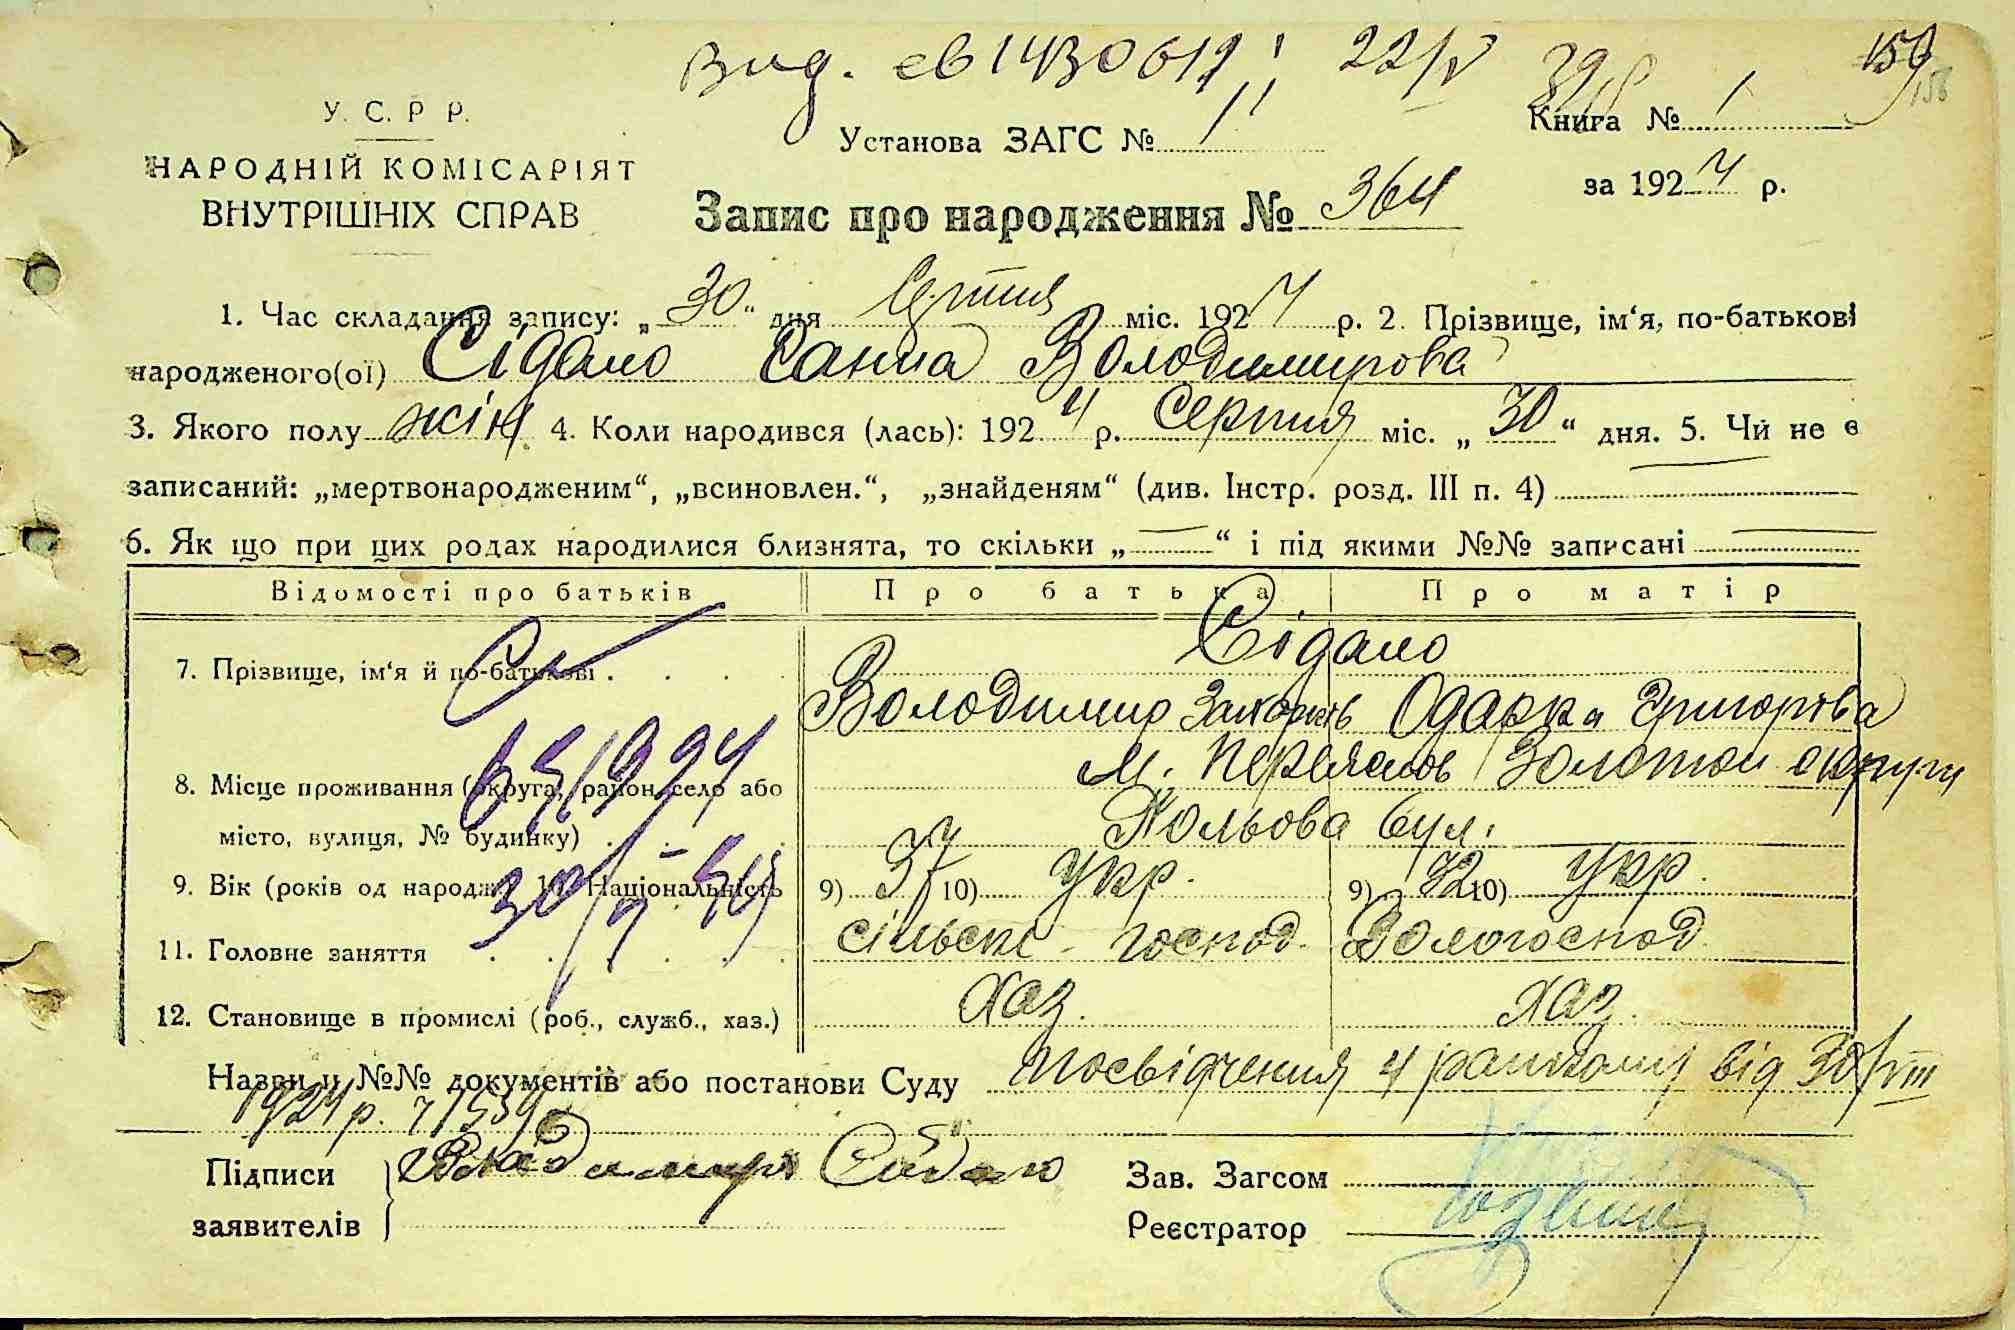 Вид. 22/V
159
У. С. Р Р.
НАРОДНІЙ КОМІСАРІЯТ
ВНУТРІШНІХ СПРАВ
Установа ЗАГС № 1
Книга № 1
за 1924 р.
Запис про народження № 364
1. Час складання запису: „30“ дня Серпня міс. 1924 р. 2. Прізвище, ім‘я, по-батькові
народженого(ої) Сідало Ганна Володимирова
3. Якого полу жін 4. Коли народився (лась): 1924 р. Серпня міс. „30“ дня. 5. Чи не є
записаний: „мертвонародженим“, „всиновлен.“, „знайденям“ (див. Інстр. розд. III п. 4)
6. Як що при цих родах народилися близнята, то скільки „ “ і під якими №№ записані
Відомості про батьків Про батька Про матір
Сідало
7. Прізвище, ім‘я й по-батькові Володимир Захоров Одарка Григорова
8. Місце проживання (округа, район, село або м. Переяслов Золотон округи
місто, вулиця, № будинку) Польова вул.
9. Вік (років од народж. 10. Національність 9) 37 10) Укр. 9) 42 10) Укр.
11. Головне заняття сільске-господ.
12. Становище в промислі (роб., служб., хаз.) Хаз. Хаз.
Назви й №№ документів або постанови Суду посвідчення від 30/VIII
1924 р.
Підписи Владимир Сидало Зав. Загсом
заявителів Реєстратор